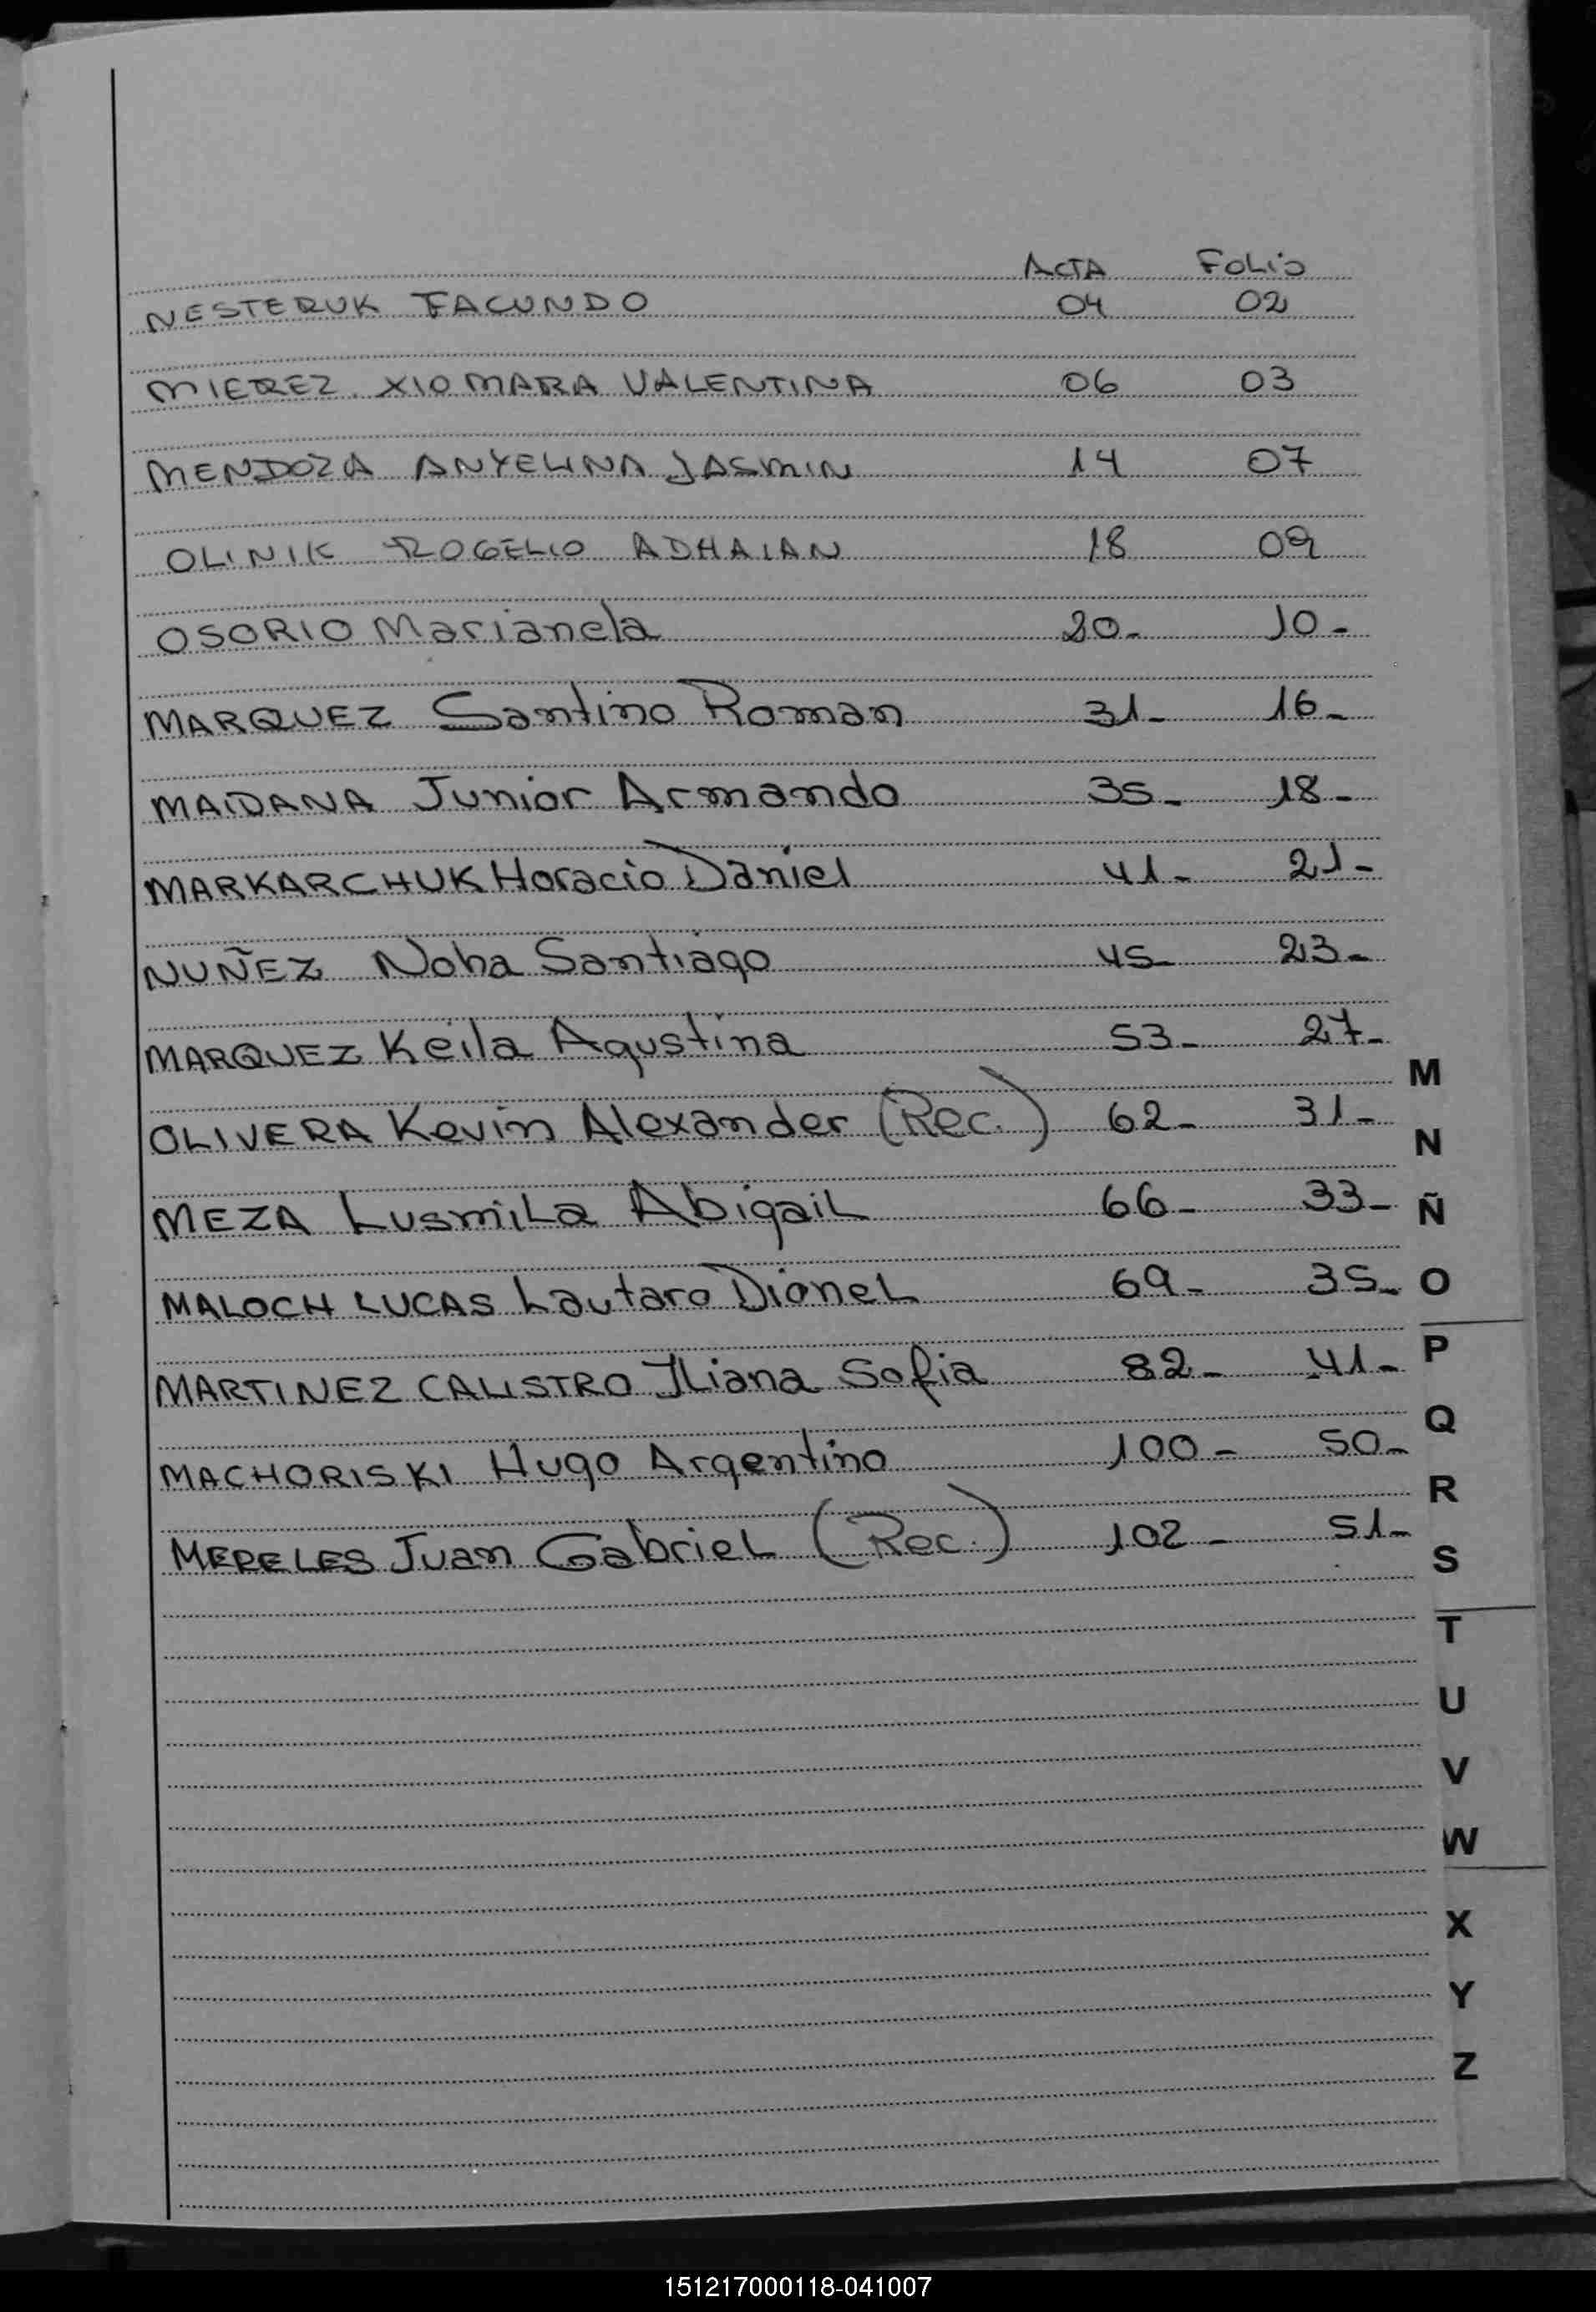 ACTA FOLIO
NESTERUK FACUNDO 04 02
MIEREZ XIOMARA VALENTINA 06 03
MENDOZA ANYELINA JASMIN 14 07
OLINIK ROGELIO ADHAIAN 18 09
OSORIO Marianela 20- 10-
MARQUEZ Santino Roman 31- 16-
MAIDANA Junior Armando 35- 18-
MARKARCHUK Horacio Daniel 41- 21-
NUÑEZ Noha Santiago 45- 23-
MARQUEZ Keila Agustina 53- 27-
M
OLIVERA Kevin Alexander (Rec.) 62- 31-
N
MEZA Lusmila Abigail 66- 33-
Ñ
MALOCH LUCAS Lautaro Dionel 69- 35-
O
P
MARTINEZ CALISTRO Iliana Sofia 82- 41-
Q
MACHORISKI Hugo Argentino 100- 50-
R
MERELES Juan Gabriel (Rec.) 102- 51-
S
T
U
V
W
X
Y
Z
151217000118-041007